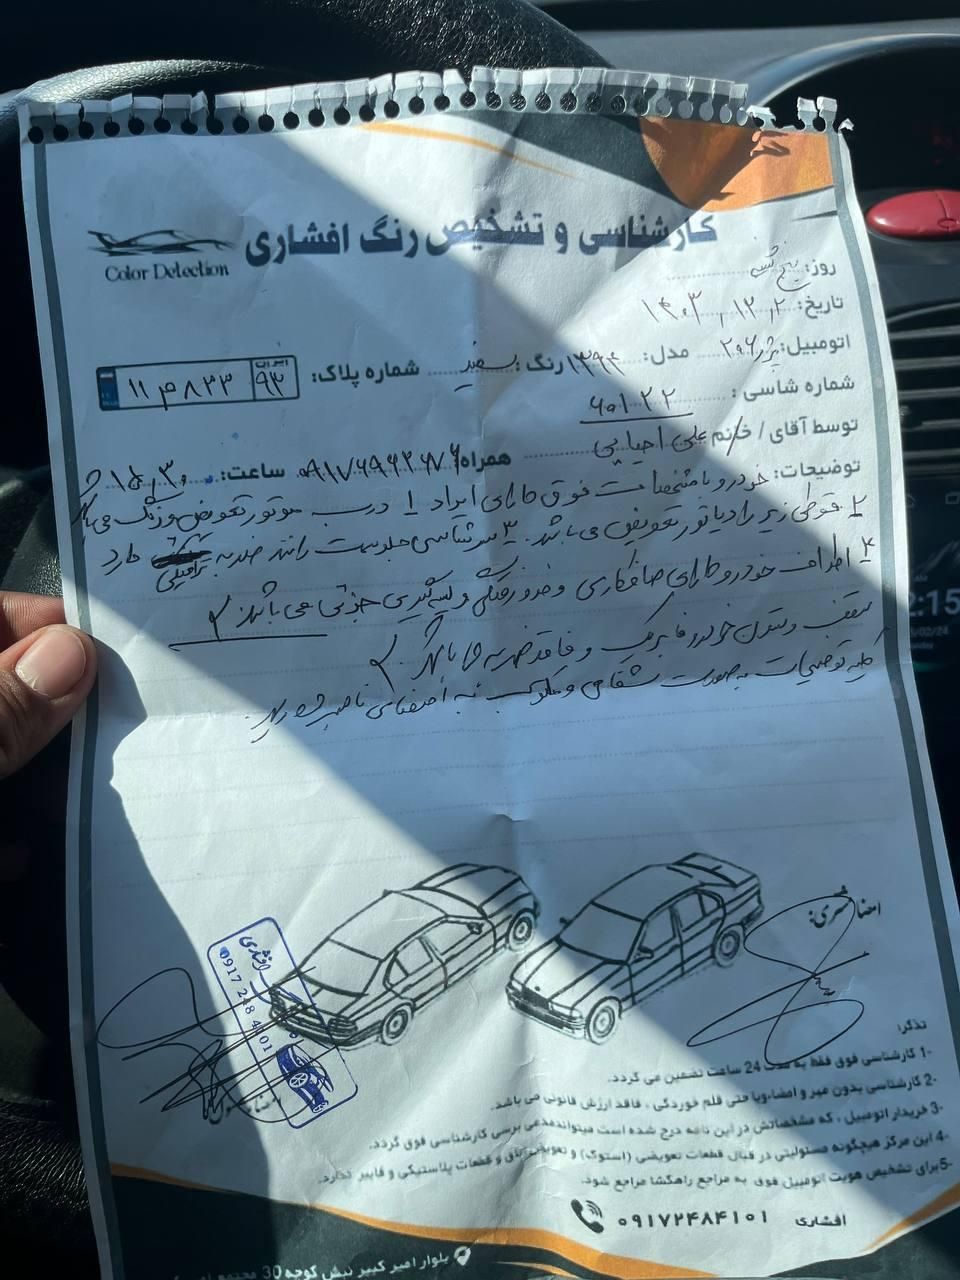 کارشناسی و تشخیص رنگ افشاری
Color Detection
روز: پنج شنبه
تاریخ: ۱۴۰۳,۱۲,۲
اتومبیل: پژو ۲۰۶ مدل: ۱۳۹۴ رنگ: سفید شماره پلاک: ۱۱ م ۸۳۳ ایران ۹۳
شماره شاسی: ۶۰۱۲۲
توسط آقای / خانم علی احیایی همراه ۰۹۱۷۶۹۶۲۶۷۶ ساعت: ۱۵,۳۰
توضیحات: خودرو با مشخصات فوق دارای ایراد ۱ درب موتور تعویض و رنگ می باشد
۲ قوطی زیر رادیاتور تعویض می باشد. ۳ سرشاسی جلو سمت راننده ضربه ترافیکی دارد
۴ اطراف خودرو دارای صافکاری و خودرو رنگی و لیسه گیری جزئی می باشد
سقف و ستون خودرو فابریک و فاقد ضربه می باشد
کلیه توضیحات به صورت شفاهی و مکتوب به امضا
امضا مشتری:
افشاری
0917 248 4101
امضا مسئول
تذکر:
1- کارشناسی فوق فقط به مدت 24 ساعت تضمین می گردد.
2- کارشناسی بدون مهر و امضاء ویا حتی قلم خوردگی ، فاقد ارزش قانونی می باشد.
3- خریدار اتومبیل ، که مشخصاتش در این نامه درج شده است میتواند مدعی برسی کارشناسی فوق گردد.
4- این مرکز هیچگونه مسئولیتی در قبال قطعات تعویضی (استوک) و تعویض اتاق و قطعات پلاستیکی و فایبر ندارد.
5- برای تشخیص هویت اتومبیل فوق به مراجع راهگشا مراجع شود.
افشاری ۰۹۱۷۲۴۸۴۱۰۱
بلوار امیر کبیر نبش کوچه 30 مجتمع
2:15